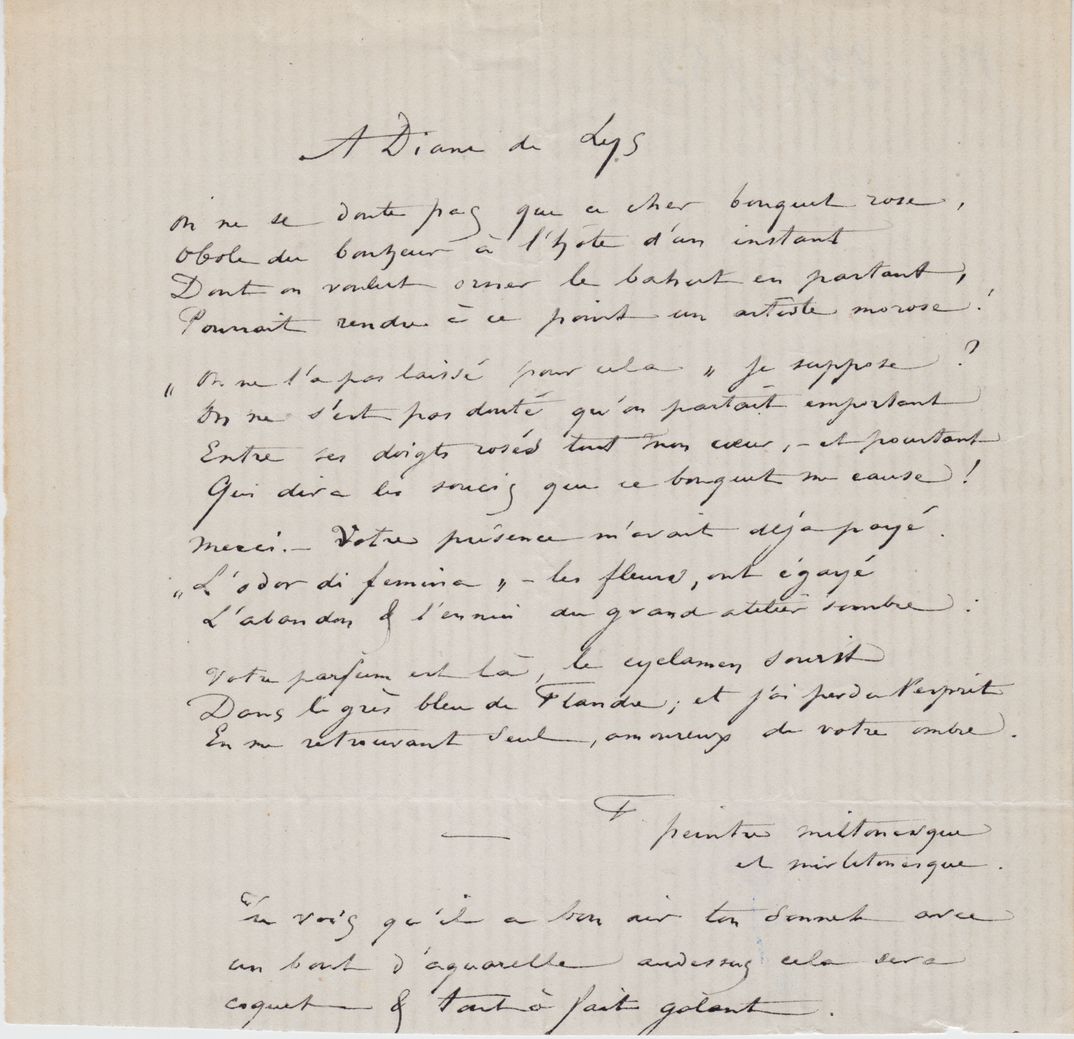 A Diane de Lys
On ne se doute pas que ce cher bouquet rose,
Obole du bonheur à l'hôte d'un instant
Dont on voulut orner le bahut en partant,
Pourrait rendre à ce point un artiste morose !
„ On ne l'a pas laissé pour cela „ je suppose ?
On ne s'est pas douté qu'on partait emportant
Entre ses doigts rosés tout mon cœur, – et pourtant
Qui dira les soucis que ce bouquet me cause !
Merci. – Votre présence m'avait déja payé.
„ L'odor di femina „ – les fleurs, ont égayé
L'abandon & l'ennui du grand atelier sombre :
Votre parfum est là, le cyclamen sourit
Dans le grès bleu de Flandre ; et j'ai perdu l'esprit
En me retrouvant seul, amoureux de votre ombre.
F peintre miltonesque
et mirlitonesque.
Tu vois qu'il a bon air ton sonnet avec
un bout d'aquarelle audessus cela sera
coquet & tout à fait galant.